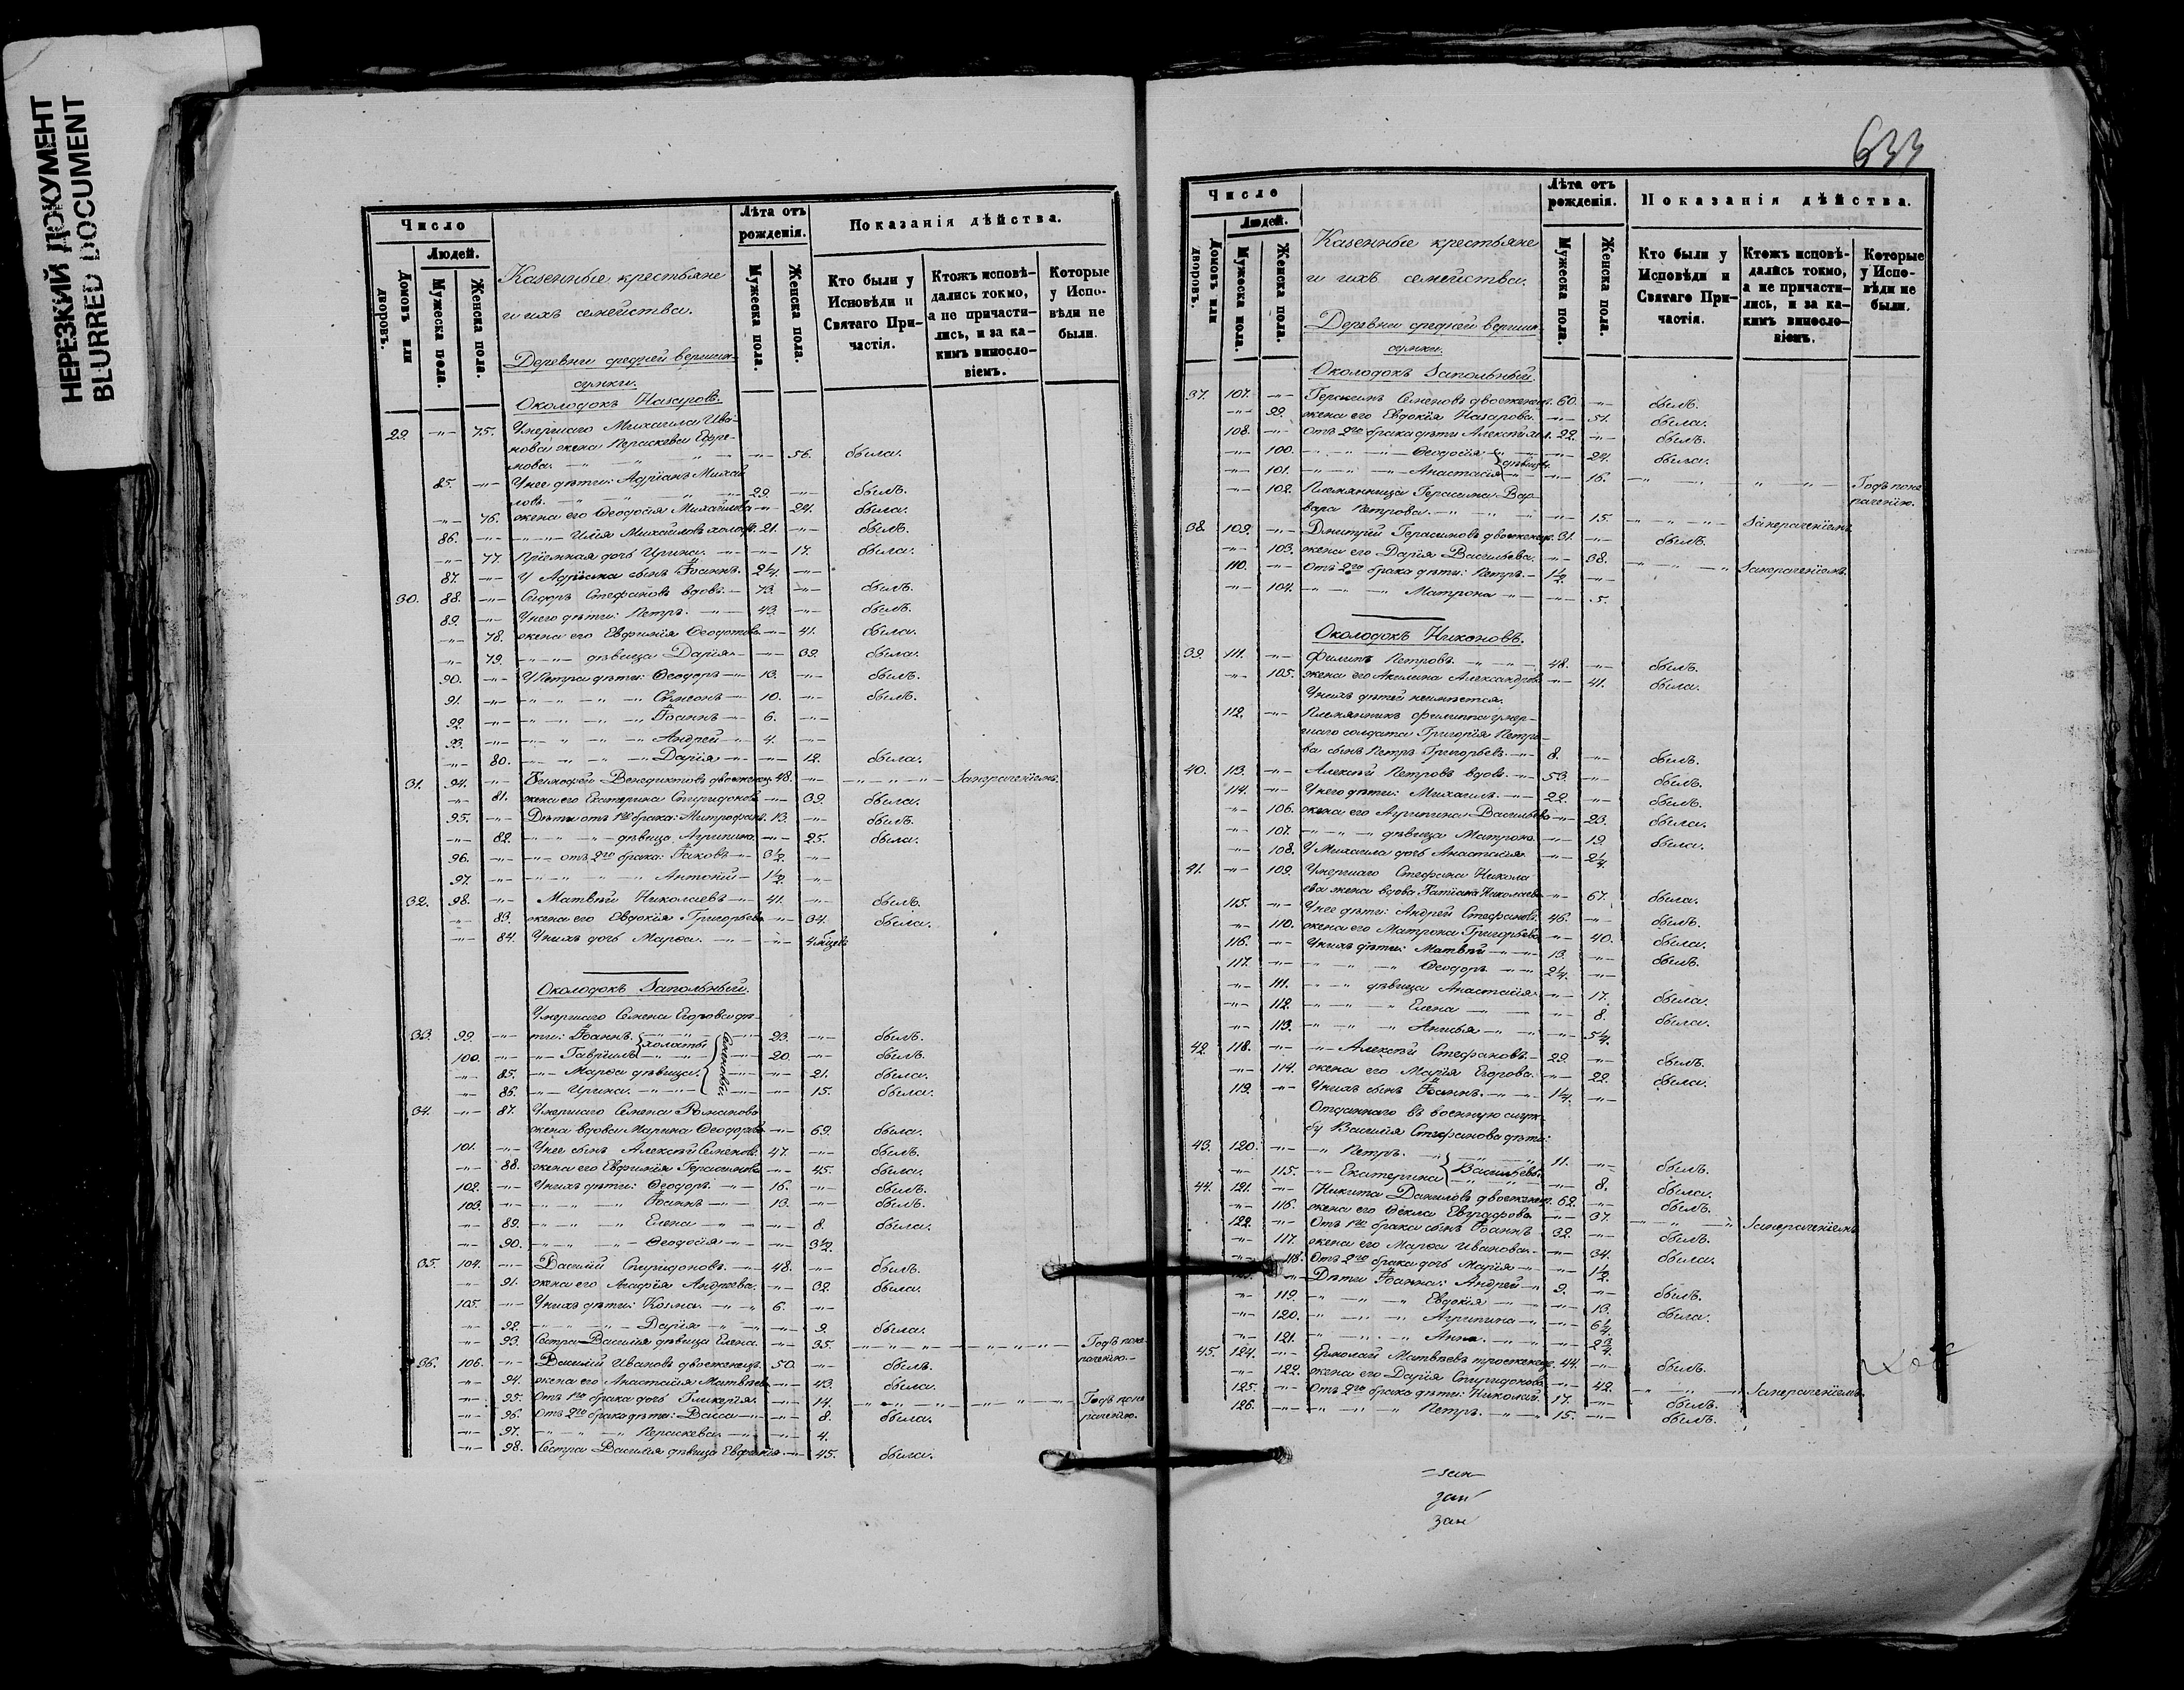 НЕРЕЗКИЙ ДОКУМЕНТ
BLURRED DOCUMENT
Число
Людей.
Домовъ или дворовъ.
Мужеска пола.
Женска пола.
Казенные крестьяне
и ихъ семейства.
Деревни средней вершин-
сумки.
Околодокъ Назаровъ.
Лѣта отъ рожденія.
Мужеска пола.
Женска пола.
Показанія дѣйства.
Кто были у Исповѣди и Святаго Причастія.
Ктожъ исповѣ-дались токмо, а не причасти-лись, и за ка-кимъ винословіемъ.
Которые у Испо-вѣди не были.
29. -"- 75. Умершаго Михаила Ива-
нова жена Параскева Ефре-
мова. -"- 56. была.
85. -"- У нее дѣти: Адріанъ Михай
ловъ. 29. -"- былъ.
-"- 76. жена его Ѳеодосія Михайлова -"- 24. была.
86. -"- -"- Илія Михайловъ холостъ. 21. -"- былъ.
-"- 77. Пріемная дочь Ирина. -"- 17. была.
87. -"- У Адріана сынъ Іоаннъ. 2¼. -"-
30. 88. -"- Сидоръ Стефановъ вдовъ. 73. -"- былъ.
89. -"- У него дѣти: Петръ. 43. -"- былъ.
-"- 78. жена его Евфимія Ѳеодотова -"- 41. была.
-"- 79. -"- дѣвица Дарія -"- 39. была.
90. -"- У Петра дѣти: Ѳеодоръ 13. -"- былъ.
91. -"- Сѵмеонъ 10. -"- былъ.
92. -"- Іоаннъ 6. -"-
93. -"- Андрей 4. -"-
-"- 80. Дарія -"- 12. была.
31. 94. -"- Тимофей Венедиктовъ двоеженецъ 48. -"- Занераченіемъ.
-"- 81. жена его Екатерина Спиридонова -"- 39. была.
95. -"- Дѣти отъ 1го брака: Митрофанъ. 13. -"- былъ.
-"- 82. дѣвица Агрипина -"- 25. была.
96. -"- отъ 2го брака: Іаковъ 3½. -"-
97. -"- Антоній 1½. -"-
32. 98. -"- Матвѣй Николаевъ 41. -"- былъ.
-"- 83. жена его Евдокія Григорьева -"- 34. была.
-"- 84. У нихъ дочь Марѳа. -"- 4 мѣсяц
Околодокъ Запольный.
Умершаго Семена Егорова дѣ-
33. 99. -"- ти: Іоаннъ. холосты Семеновы 23. -"- былъ.
100. -"- Гавріилъ 20. -"- былъ.
-"- 85. Марѳа дѣвица. -"- 21. была.
-"- 86. Ирина. -"- 15. была.
34. -"- 87. Умершаго Семена Романова
жена вдова Марина Ѳеодорова -"- 69. была.
101. -"- У нее сынъ Алексѣй Семеновъ 47. -"- былъ.
-"- 88. жена его Евфимія Герасимова -"- 45. была.
102. -"- У нихъ дѣти: Ѳеодоръ 16. -"- былъ.
103. -"- Іоаннъ 13. -"- былъ.
-"- 89. Елена -"- 8. была.
-"- 90. Ѳеодосія -"- 3½.
35. 104. -"- Василій Спиридоновъ. 48. -"- былъ.
-"- 91. жена его Агафія Андреева. -"- 32. была.
105. -"- У нихъ дѣти: Козма. 6. -"-
-"- 92. Дарія -"- 9. была.
-"- 93. Сестра Василія дѣвица Елена. -"- 35. Годъ поне
раченію.
36. 106. -"- Василій Ивановъ двоеженецъ. 50. -"- былъ.
-"- 94. жена его Анастасія Матвѣева -"- 43. была.
-"- 95. Отъ 1го брака дочь Гликерія. -"- 14. Годъ поне
раченію.
-"- 96. Отъ 2го брака дѣти: Васса -"- 8. была.
-"- 97. Параскева. -"- 4.
-"- 98. Сестра Василія дѣвица Евфимія -"- 45. была.
633
Число
Людей.
Домовъ или дворовъ.
Мужеска пола.
Женска пола.
Казенные крестьяне
и ихъ семейства.
Деревни средней вершин-
сумки.
Околодокъ Запольный.
Лѣта отъ рожденія.
Мужеска пола.
Женска пола.
Показанія дѣйства.
Кто были у Исповѣди и Святаго При-частія.
Ктожъ исповѣ-дались токмо, а не причасти-лись, и за ка-кимъ винословіемъ.
Которые у Испо-вѣди не были.
37. 107. -"- Герасимъ Семеновъ двоеженец. 60. -"- былъ.
-"- 99. жена его Евдокія Назарова. -"- 51. была.
108. -"- Отъ 2го брака дѣти Алексѣй 22. -"- былъ.
-"- 100. Ѳеодосія дѣвицы -"- 24. была.
-"- 101. Анастасія -"- 16. Годъ поне
раченію.
-"- 102. Племянница Герасима Вар-
вара Петрова. -"- 15. Занераченіемъ
38. 109. -"- Дмитрій Герасимовъ двоеженец. 31. -"- былъ.
-"- 103. жена его Дарія Васильева. -"- 38. Занераченіемъ.
110. -"- Отъ 2го брака дѣти: Петръ. 1½. -"-
-"- 104. Матрона -"- 5.
Околодокъ Никоновъ.
39. 111. -"- Филипъ Петровъ. 48. -"- былъ.
-"- 105. жена его Акилина Александрова -"- 41. была.
У нихъ дѣтей неимѣется.
112. -"- Племянникъ Филиппа умер-
шаго солдата Григорія Петро-
ва сынъ Петръ Григорьевъ. 8. -"- былъ.
40. 113. -"- Алексѣй Петровъ вдовъ. 53. -"- былъ.
114. -"- У него дѣти: Михаилъ. 22. -"- былъ.
-"- 106. жена его Агрипина Васильева -"- 23. была.
-"- 107. дѣвица Матрона -"- 19. была.
-"- 108. У Михаила дочь Анастасія -"- 2¼.
41. -"- 109. Умершаго Стефана Никола
ева жена вдова Татіана Николаева -"- 67. была.
115. -"- У нее дѣти: Андрей Стефановъ. 46. -"- былъ.
-"- 110. жена его Матрона Григорьева -"- 40. была.
116. -"- У нихъ дѣти: Матвѣй 13. -"- былъ.
117. -"- Ѳеодоръ 2¼. -"-
-"- 111. дѣвица Анастасія -"- 17. была.
-"- 112. Елена -"- 8. была.
-"- 113. -"- 5¼.
42. 118. -"- Алексѣй Стефановъ. 29. -"- былъ.
-"- 114. жена его Марія Егорова. -"- 22. была.
119. -"- У нихъ сынъ Іоаннъ. 1¼. -"-
Отданнаго въ военную служ-
бу Василія Стефанова дѣти:
43. 120. -"- Петръ. Васильевы 11. -"- былъ.
-"- 115. Екатерина -"- 8. была.
44. 121. -"- Никита Даниловъ двоеженец. 62. -"- былъ.
-"- 116. жена его Ѳекла Евграфова -"- 37. Занераченіемъ
122. -"- Отъ 1го брака сынъ Іоаннъ 32. -"- былъ.
-"- 117. жена его Марѳа Иванова. -"- 34. была.
-"- 118. Отъ 2го брака дочь Марія -"- 1½.
123. -"- Дѣти Іоанна: Андрей 9. -"- былъ.
-"- 119. Евдокія -"- 13. была.
-"- 120. Агрипина -"- 6¼.
-"- 121. Анна. -"- 2¾.
45. 124. -"- Ермолай Матвѣевъ троеженец. 44. -"- былъ.
-"- 122. жена его Дарія Спиридонова -"- 42. Занераченіемъ.
125. -"- Отъ 2го брака дѣти: Николай. 17. -"- былъ.
126. -"- Петръ. 15. -"- былъ.
зан
зан
зан